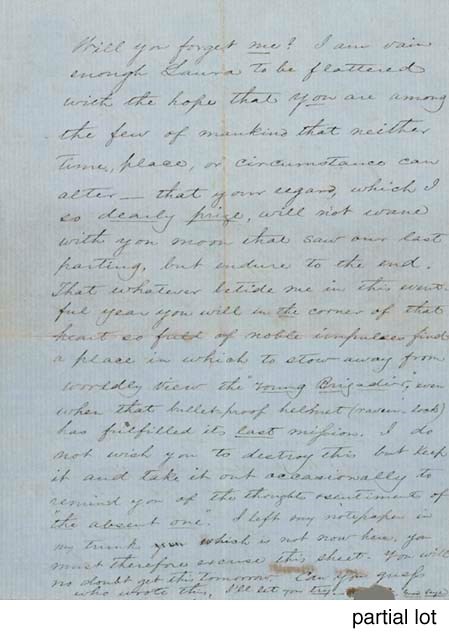 Will you forget me? I am vain
enough Laura to be flattered
with the hope that you are among
the few of mankind that neither
time, place, or circumstance can
alter — that your regard, which I
so dearly prize, will not wane
with yon moon that saw our last
parting, but endure to the end.
That whatever betide me in this event-
ful year you will in the corner of that
heart so full of noble impulses find
a place in which to stow away from
worldly view the "Young Brigadier", even
when that bulletproof helmet (raven lock)
has fulfilled its last mission. I do
not wish you to destroy this but keep
it and take it out occasionally to
remind you of the thought & sentiment of
"the absent one". I left my notepaper in
my trunk which is not now here, you
must therefore excuse this sheet. You will
no doubt get this tomorrow. Can you guess
who wrote this, I'll let you try
partial lot